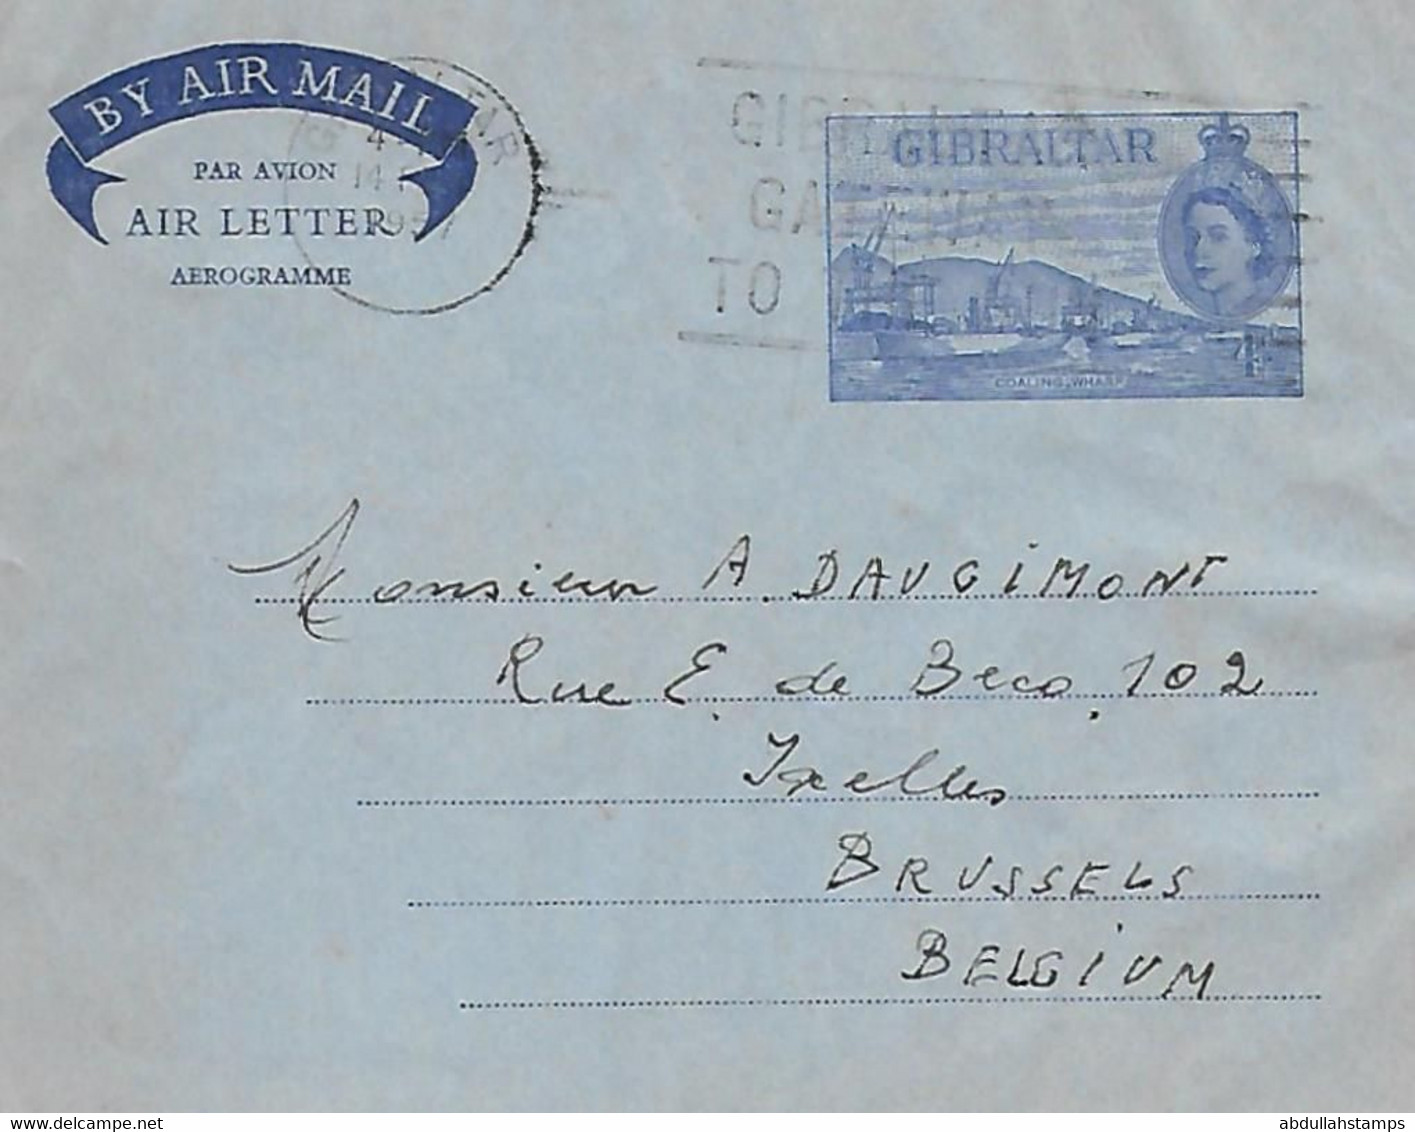 BY AIR MAIL
PAR AVION
AIR LETTER
AEROGRAMME
GIBRALTAR
GATEWAY
TO
GIBRALTAR
COALING WHARF
Monsieur A. DAUGIMONT
Rue E. de Beco, 102
Ixelles
BRUSSELS
BELGIUM
Delcampe.net
abdullahstamps